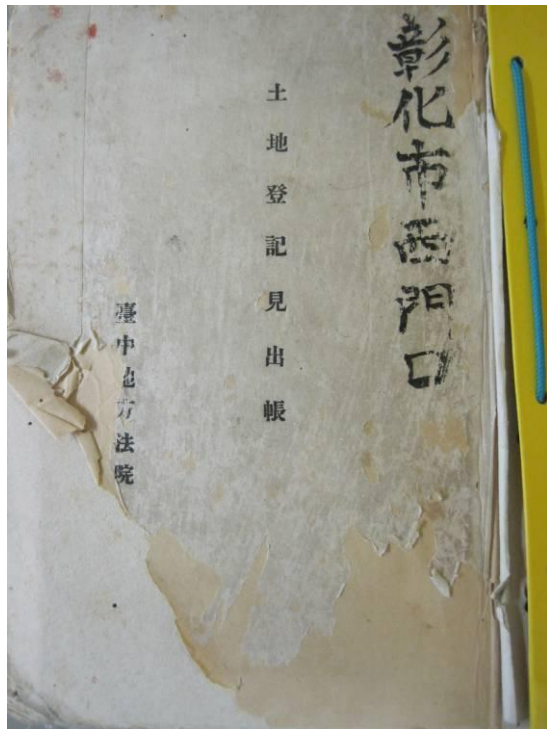 彰化市西門口
土地登記見出帳
臺中地方法院